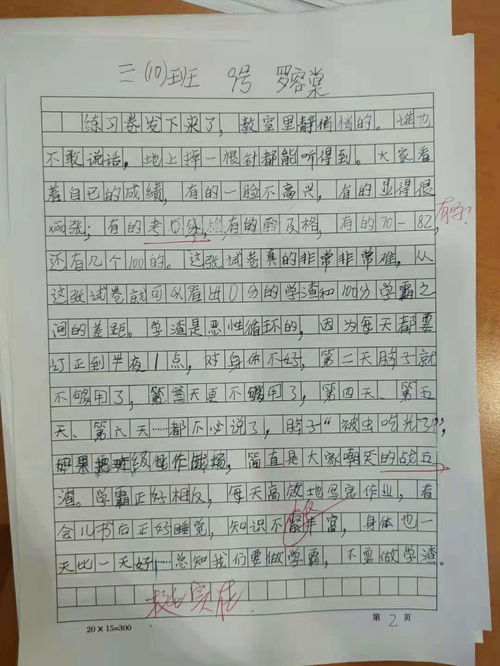 三(10)班 9号 罗容棠
练习卷发下来了，教室里静俏俏的。谁也
不敢说话，地上掉一根针都能听得到。大家看
着自己的成绩，有的一脸不高兴，有的显得很
紧张；有的考0分，有的及格，有的70-82，
还有几个100的。这张试卷真的非常非常难，从
这张试卷就可以看出0分的学渣和100分学霸之
间的差距。学渣是恶性循环的，因为每天都要
订正到半夜1点，对身体不好，第二天脖子就
不够用了，第三天更不够用了，第四天、第五
天、第六天……都不必说了，脖子“被虫吃光了”，
如果把班级当作战场，简直是大家嘲笑的战五
渣。学霸正好相反，每天高效地写完作业，看
会儿书后正好睡觉，知识不仅丰富，身体也一
天比一天好……总知我们要做学霸，不要做学渣。
20×15=300 第 2 页